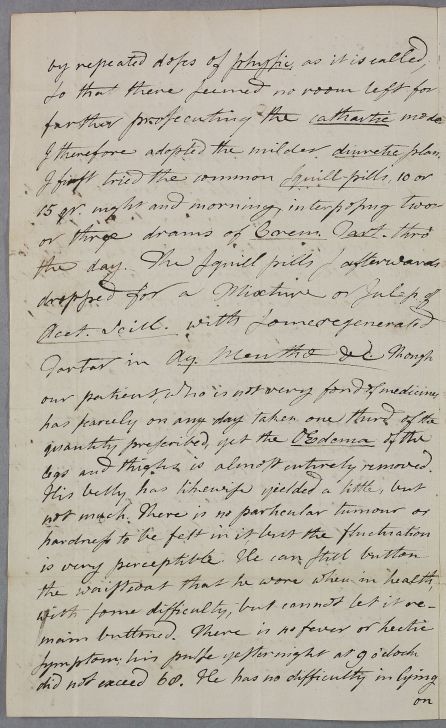 by repeated doses of physic, as it is called,
so that there seemed no room left for
further prosecuting the cathartic mode
I therefore adopted the milder diuretic plan,
I first tried the common Squill-pills, 10 or
15 gr. night and morning, interposing two
or three drams of Crem. Tart. thro
the day. The Squill pills I afterwards
dropped for a Mixture or Julep of
Acet. Scill. with some regenerated
Tartar in Aq. Menthæ &c. Though
our patient who is not very fond of medicine,
has rarely on any day taken one third of the
quantity prescribed, yet the Œdema of the
legs and thighs is almost entirely removed.
His belly has likewise yielded a little, but
not much. There is no particular tumour or
hardness to be felt in it but the fluctuation
is very perceptible. He can still button
the waistcoat that he wore when in health,
with some difficulty, but cannot let it re-
main buttoned. There is no fever or hectic
symptom; his pulse yesternight at 9 o'clock
did not exceed 60. He has no difficulty in lying
on